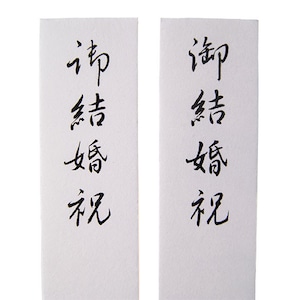 御結婚祝
御結婚祝